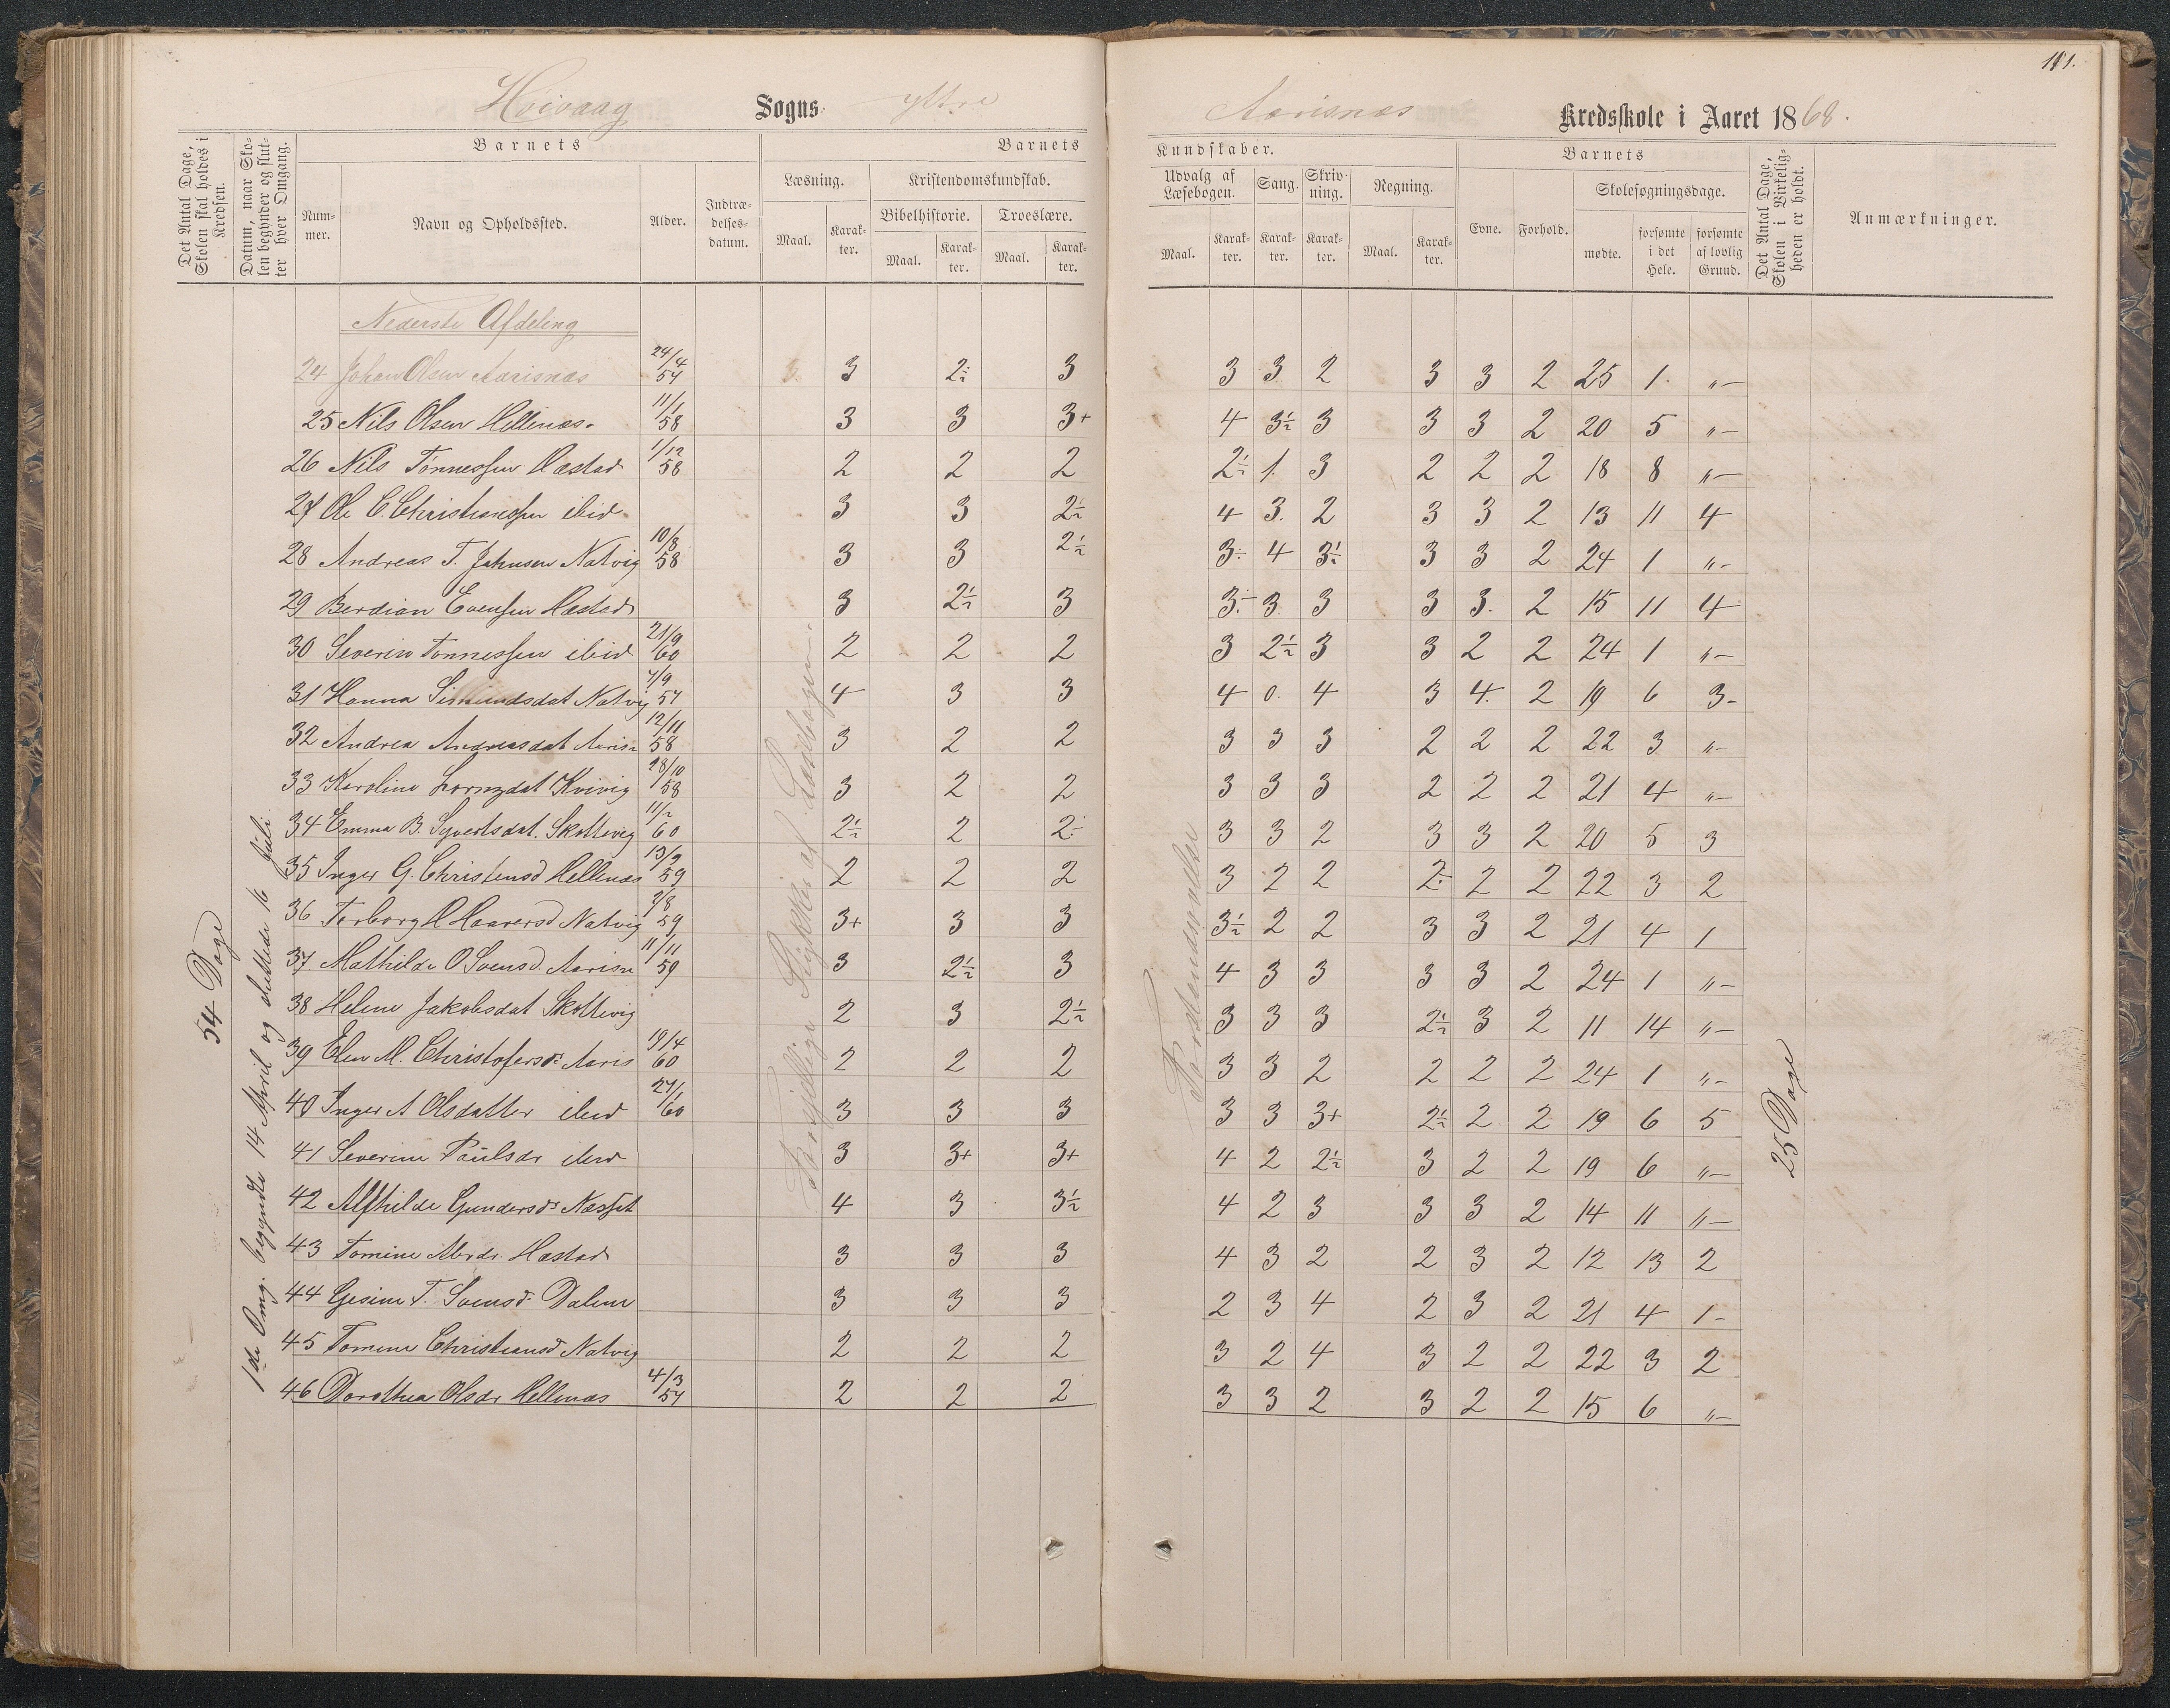 111.
Høivaag Sogns ytre Aarisnæs Kredsskole i Aaret 1868.
Det Antal Dage, Skolen skal holdes i Kredsen.
Datum, naar Skolen begynder og slutter hver Omgang.
Barnets
Nummer.
Navn og Opholdssted.
Alder.
Indtrædelsesdatum.
Barnets
Læsning.
Maal.
Karakter.
Kristendomskundskab.
Bibelhistorie.
Maal.
Karakter.
Troeslære.
Maal.
Karakter.
Kundskaber.
Udvalg af Læsebogen.
Maal.
Karakter.
Sang.
Karakter.
Skrivning.
Karakter.
Regning.
Maal.
Karakter.
Barnets
Evne.
Forhold.
Skolesøgningsdage.
mødte.
forsømte i det Hele.
forsømte af lovlig Grund.
Det Antal Dage, Skolen i Virkeligheden er holdt.
Anmærkninger.
54 Dage
1de Omg. begyndte 14 April og sluttede 16 Juli
Forskjellige Stykker af Læsebogen.
25 Dage
Nederste Afdeling
24 Johan Olsen Aarisnæs 24/4 57 3 2÷ 3 3 3 2 3 3 2 25 1. "-
25 Nils Olsen Hellenæs. 11/1 58 3 3 3+ 4 3½ 3 3 3 2 20 5 "-
26 Nils Tønnessen Hæstad 1/12 58 2 2 2 2½ 1. 3 2 2 2 18 8 "-
27 Ole C. Christianssen ibid 3 3 2½ 4 3. 2 3 3 2 13 11 4
28 Andreas T. Jahnsen Natvig 10/8 58 3 3 2½ 3÷ 4 3½ 3 3 2 24 1 "-
29 Berdian Evensen Hæstad 3 2½ 3 3÷ 3. 3 3 3. 2 15 11 4
30 Severin Tønnessen ibid 21/9 60 2 2 2 3 2½ 3 3 2 2 24 1 "-
31 Hanna Simundsdat Natvig 7/9 57 4 3 3 4 0. 4 3 4. 2 19 6 3-
32 Andrea Andreasdat Aarisn 12/11 58 3 2 2 3 3 3 2 2 2 22 3 "-
33 Karoline Lornzdat Kvivig 28/10 58 3 2 2 3 3 3 2 2 2 21 4 "-
34 Emma B. Syvertsdat. Skottevig 11/2 60 2½ 2 2÷ 3 3 2 3 3 2 20 5 3
35 Inger G. Christensd Hellenæs 13/2 59 2 2 2 3 2 2 2÷ 2 2 22 3 2
36 Torborg H Haaversd Natvig 2/8 59 3+ 3 3 3½ 2 2 3 3 2 21 4 1
37 Mathilde O Svensd. Aarisn 11/11 59 3 2½ 3 4 3 3 3 3 2 24 1 "-
38 Helene Jakobsdat Skottevig 2 3 2½ 3 3 3 2½ 3 2 11 14 "-
39 Elen M. Christofersdr Aaris 19/4 60 2 2 2 3 3 2 2 2 2 24 1 "-
40 Inger A Olsdatter ibid 27/1 60 3 3 3 3 3 3+ 2½ 2 2 19 6 5
41 Severine Paulsdr ibid 3 3+ 3+ 4 2 2½ 3 2 2 19 6 "-
42 Alfhilde Gundersdr Næsset 4 3 3½ 4 2 3 3 3 2 14 11 "-
43 Tomine Abrdr. Hæstad 3 3 3 4 3 2 2 3 2 12 13 2
44 Gesine T. Svensd. Dalene 3 3 3 2 3 4 2 3 2 21 4 1-
45 Tomine Christiansd Natvig 2 2 2 3 2 4 3 2 2 22 3 2
46 Dorothea Olsdr Hellenæs 4/3 57 2 2 2 3 3 2 3 2 2 15 6 "-